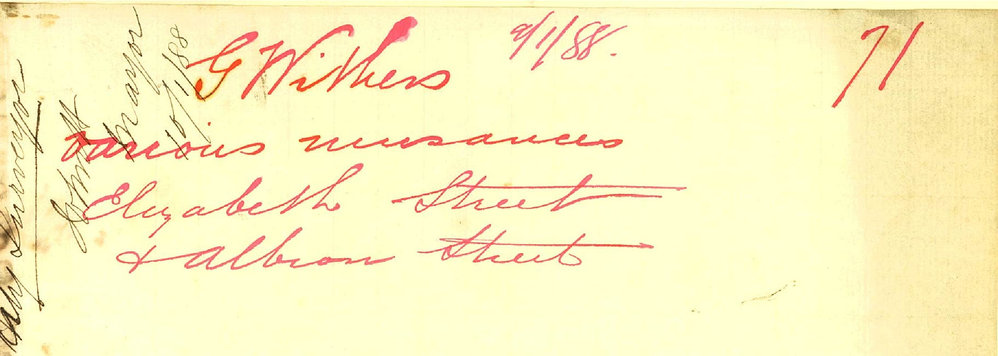 9/1/88.
71
G Withers
various nuisances
Elizabeth Street
& Albion Street
City Surveyor
Mayor
10/1/88